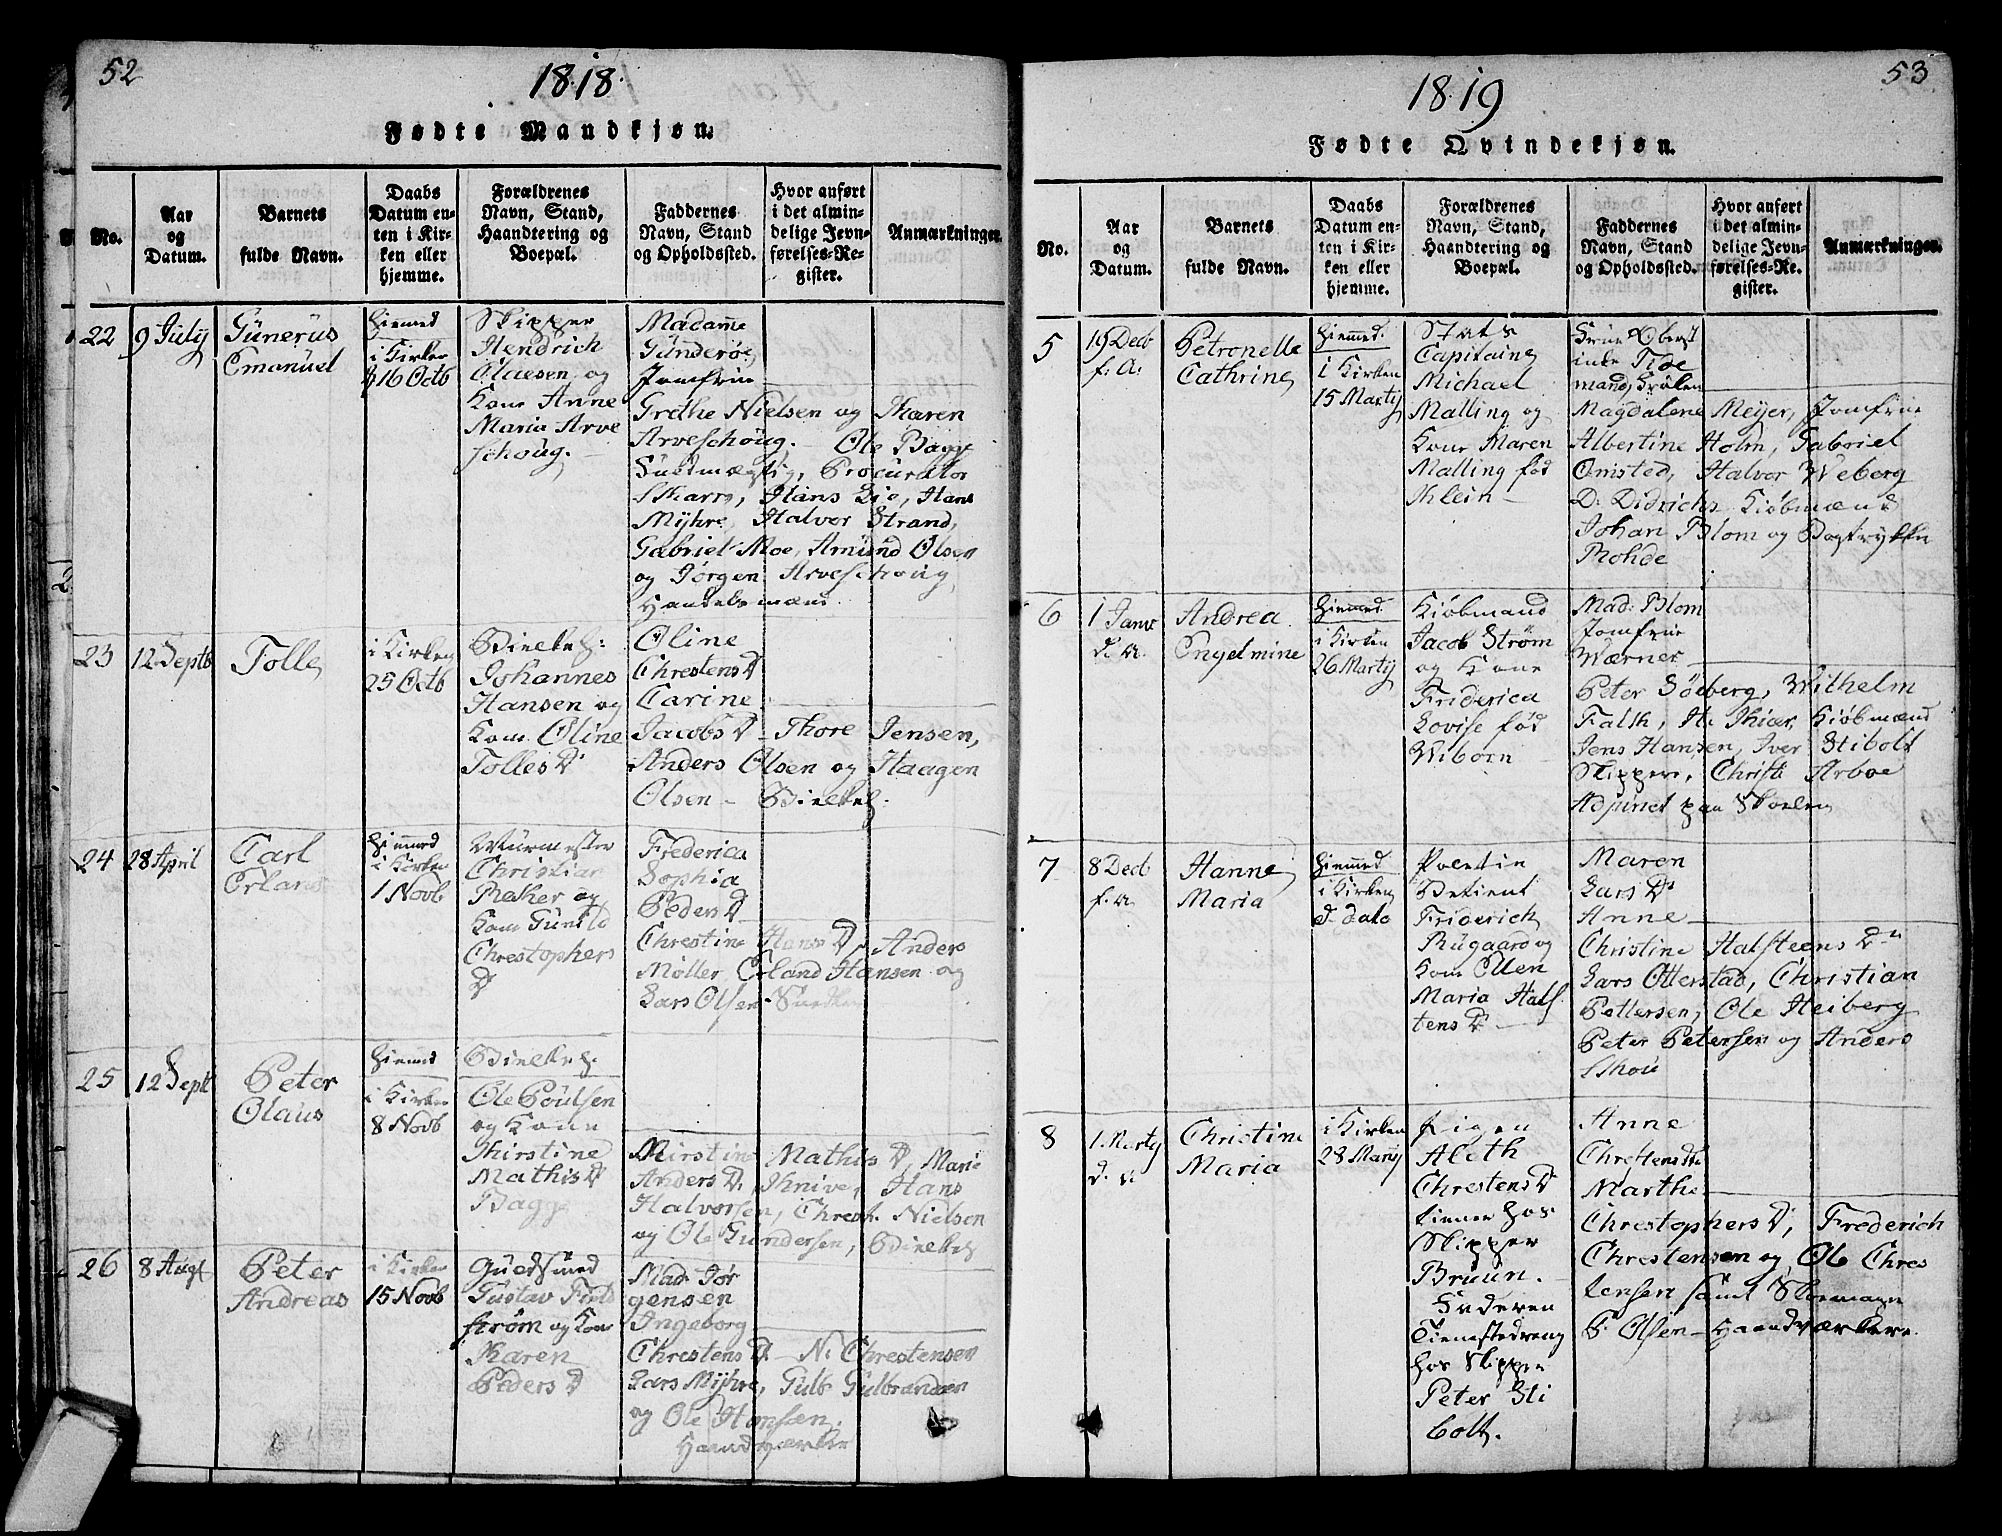 52
1818.
Fødte Mandkjøn.
No.
Aar
og
Datum.
Barnets
fulde Navn.
Daabs
Datum en-
ten i Kir-
ken eller
hjemme.
Forældrenes
Navn, Stand,
Haandtering og
Boepæl.
Faddernes
Navn, Stand
og Opholdssted.
Hvor anført
i det almin-
delige Jevn-
førelses-Re-
gister.
Anmærkninger.
22
9 July
Gunerus
Emanuel
Hiemed
i Kirken
16 Octb
Skipper
Hendrich
Claesen og
Kone Anne
Maria Arve
schoug.
Madame
Gunderøe,
Jomfrue
Grethe Nielsen og Karen
Arveschoug. Ole Bagge
Procurator
Skarre, Hans Lie, Hans
Myhre, Halvor Strand,
Gabriel Moe, Amund Olsen
og Jørgen Arveschoug
Handelsmænd
23
12 Septb
Tolle
i Kirken
25 Octb
Johannes
Hansen og
Kone Oline
Tolles D
Oline
Chrestens D
Carine
Jacobs D - Thore Jensen,
Anders Olsen og Haagen
Olsen -
24
28 April
Carl
Erland
Hiemed
i Kirken
1 Novb
Muurmester
Christian
Røker og
Kone Gunild
Christophers
D
Frederica
Sophia
Peders D
Chrestine Hans D, Anders
Møller, Erland Hansen og
Lars Olsen -
25
12 Septb
Peter
Olaus
Hiemed
i Kirken
8 Novb
Ole Poulsen
og Kone
Kirstine
Mathis D
Bagge
Kirstine Mathis D, Marie
Anders D. Knive, Hans
Halvorsen, Chrest. Nielsen
og Ole Gundersen,
26
8 Augt
Peter
Andreas
i Kirken
15 Novb
Guldsmed
Gustav
strøm og Kone
Karen
Peders D
Mad. Jør
gensen
Ingeborg
Chrestens D - N. Chrestensen
Lars Myhre, Gulb. Gulbrandsen
og Ole Hansen.
Haandværkere
53
1819
Fødte Qvindekjøn.
No.
Aar
og
Datum.
Barnets
fulde Navn.
Daabs
Datum en-
ten i Kir-
ken eller
hjemme.
Forældrenes
Navn, Stand,
Haandtering og
Boepæl.
Faddernes
Navn, Stand
og Opholdssted.
Hvor anført
i det almin-
delige Jevn-
førelses-Re-
gister.
Anmærkninger.
5
19 Decb
f. A.
Petronelle
Cathrine
Hiemed.
i Kirken
15 Marty
Stats
Capitaine
Michael
Malling og
Kone Maren
Malling fød
Klein -
Frue Oberst
inde Tide
mand, Frøken
Magdalene Meyer, Jomfrue
Albertine Holm, Gabriel
Omsted, Halvor Weberg
D. Didrichs Kiøbmænd
Johan Blom og Bogtrykker
Rohde
6
1 Janv
d. A.
Andrea
Engelmine
Hiemed.
i Kirken
26 Marty
Kiøbmand
Jacob Strøm
og Kone
Friderica
Lovise fød
Wiborn -
Mad: Blom
Jomfrue
Wærner
Peter Søeberg, Wilhelm
Falsk, H. Kiær, Kiøbmænd
Jens Hansen, Iver Stibolt
Skippere, Christ. Arboe
Adjunct paa Skolen
7
8 Decb
f. A
Hanne
Maria
Hiemed
i Kirken
d. dato
Politie
Betient
Friderich
Rugaard og
Kone Ellen
Maria Half
tens D -
Maren
Lars D
Anne
Christine Halfteens Dn
Lars Otterstad, Christian
Pettersen, Ole Heiberg
Peter Petersen og Anders
Skou
8
1. Marty
d. A
Christine
Maria
i Kirken
28 Marty
Pigen
Aleth
Chrestens D
tiener hos
Skipper
Bruun.
Faderen
Tienestedreng
hos Skipper
Peter Sti
bolt.
Anne
Chrestens D
Marthe
Chrestophers D, Frederich
Chrestensen og Ole Chres
tensen samt Skoemager
P. Olsen - Haandværkere.